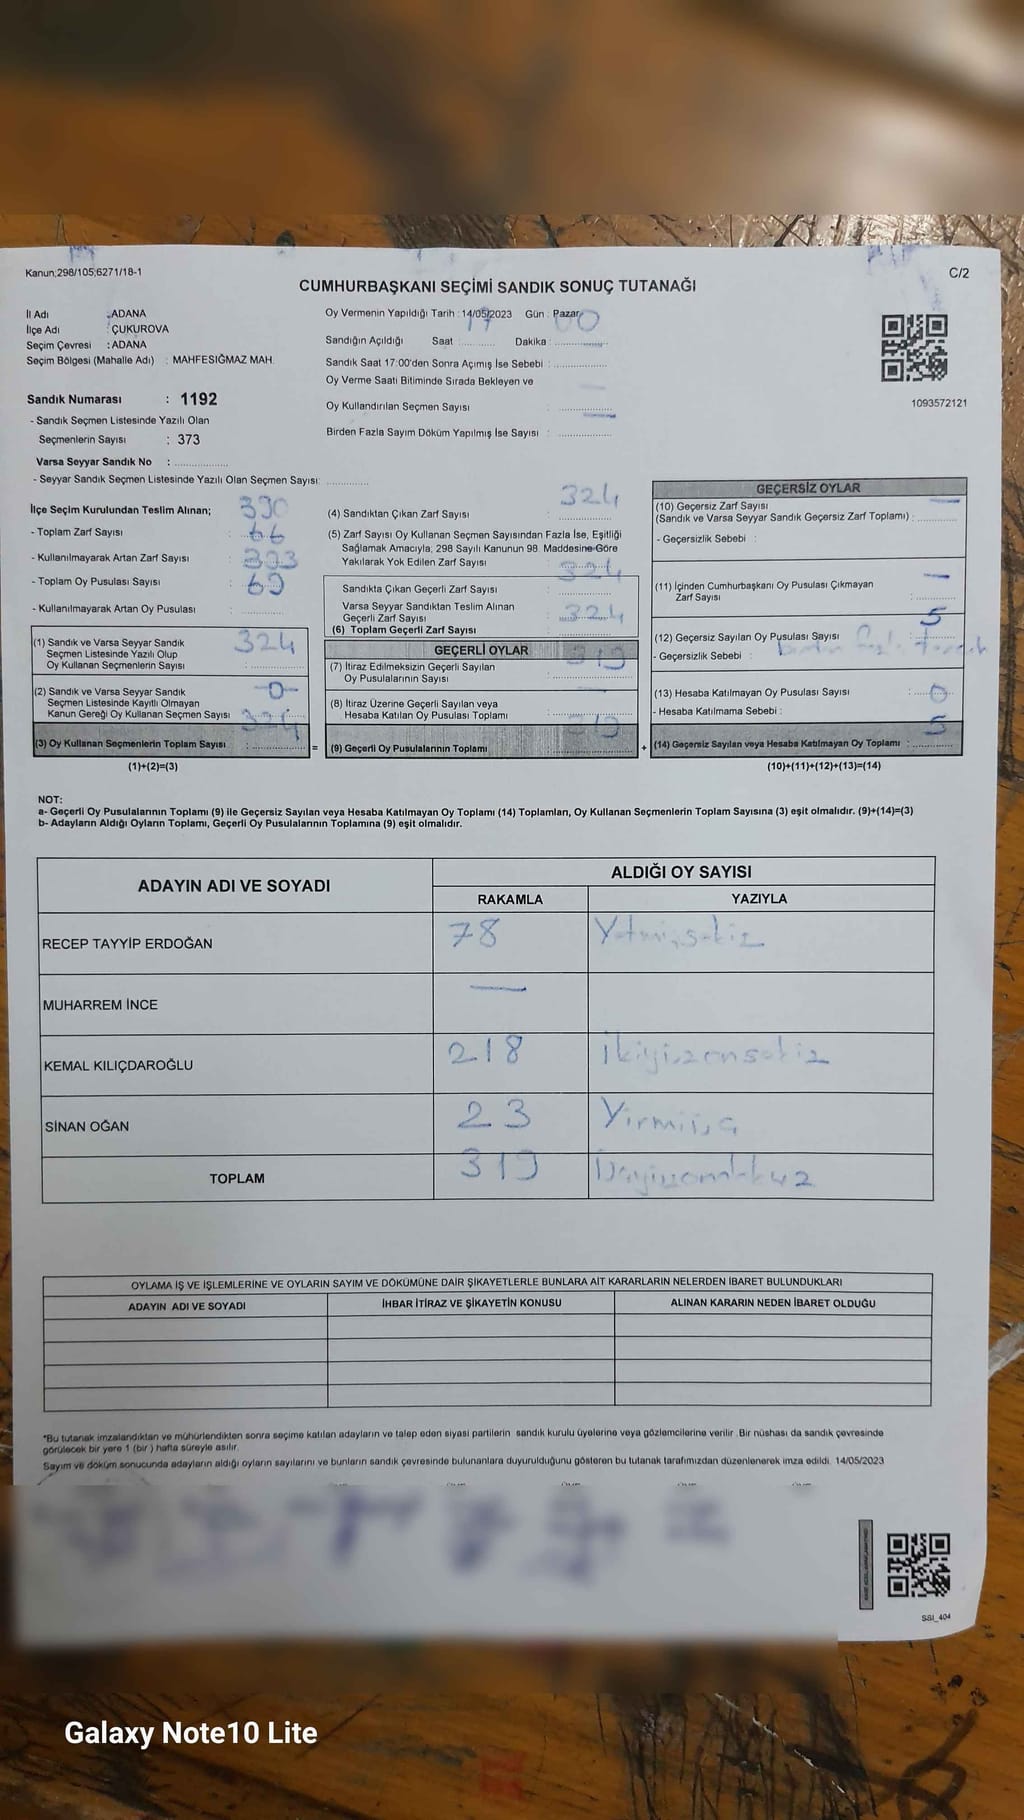 Kanun;298/105;6271/18-1
C/2
CUMHURBAŞKANI SEÇİMİ SANDIK SONUÇ TUTANAĞI
İl Adı : ADANA
İlçe Adı : ÇUKUROVA
Seçim Çevresi : ADANA
Seçim Bölgesi (Mahalle Adı) : MAHFESIĞMAZ MAH.
Sandık Numarası : 1192
- Sandık Seçmen Listesinde Yazılı Olan
Seçmenlerin Sayısı : 373
Varsa Seyyar Sandık No :
- Seyyar Sandık Seçmen Listesinde Yazılı Olan Seçmen Sayısı:
Oy Vermenin Yapıldığı Tarih : 14/05/2023 Gün : Pazar
Sandığın Açıldığı Saat : 17 Dakika : 00
Sandık Saat 17:00'den Sonra Açımış İse Sebebi :
Oy Verme Saati Bitiminde Sırada Bekleyen ve
Oy Kullandırılan Seçmen Sayısı : —
Birden Fazla Sayım Döküm Yapılmış İse Sayısı : —
1093572121
İlçe Seçim Kurulundan Teslim Alınan;
- Toplam Zarf Sayısı : 390
- Kullanılmayarak Artan Zarf Sayısı : 66
- Toplam Oy Pusulası Sayısı :
- Kullanılmayarak Artan Oy Pusulası :
(1) Sandık ve Varsa Seyyar Sandık
Seçmen Listesinde Yazılı Olup
Oy Kullanan Seçmenlerin Sayısı : 324
(2) Sandık ve Varsa Seyyar Sandık
Seçmen Listesinde Kayıtlı Olmayan
Kanun Gereği Oy Kullanan Seçmen Sayısı : -0-
(3) Oy Kullanan Seçmenlerin Toplam Sayısı : 324
(1)+(2)=(3)
(4) Sandıktan Çıkan Zarf Sayısı : 324
(5) Zarf Sayısı Oy Kullanan Seçmen Sayısından Fazla İse, Eşitliği
Sağlamak Amacıyla, 298 Sayılı Kanunun 98. Maddesine Göre
Yakılarak Yok Edilen Zarf Sayısı : —
Sandıkta Çıkan Geçerli Zarf Sayısı : 324
Varsa Seyyar Sandıktan Teslim Alınan
Geçerli Zarf Sayısı
(6) Toplam Geçerli Zarf Sayısı : 324
GEÇERLİ OYLAR
(7) İtiraz Edilmeksizin Geçerli Sayılan
Oy Pusulalarının Sayısı : 319
(8) İtiraz Üzerine Geçerli Sayılan veya
Hesaba Katılan Oy Pusulası Toplamı : —
= (9) Geçerli Oy Pusulalarının Toplamı : 319
GEÇERSİZ OYLAR
(10) Geçersiz Zarf Sayısı —
(Sandık ve Varsa Seyyar Sandık Geçersiz Zarf Toplamı) :
- Geçersizlik Sebebi :
(11) İçinden Cumhurbaşkanı Oy Pusulası Çıkmayan
Zarf Sayısı : —
(12) Geçersiz Sayılan Oy Pusulası Sayısı : 5
- Geçersizlik Sebebi :
(13) Hesaba Katılmayan Oy Pusulası Sayısı : 0
- Hesaba Katılmama Sebebi :
+ (14) Geçersiz Sayılan veya Hesaba Katılmayan Oy Toplamı : 5
(10)+(11)+(12)+(13)=(14)
NOT:
a- Geçerli Oy Pusulalarının Toplamı (9) ile Geçersiz Sayılan veya Hesaba Katılmayan Oy Toplamı (14) Toplamları, Oy Kullanan Seçmenlerin Toplam Sayısına (3) eşit olmalıdır. (9)+(14)=(3)
b- Adayların Aldığı Oyların Toplamı, Geçerli Oy Pusulalarının Toplamına (9) eşit olmalıdır.
ADAYIN ADI VE SOYADI
ALDIĞI OY SAYISI
RAKAMLA YAZIYLA
RECEP TAYYİP ERDOĞAN 78 Yetmişsekiz
MUHARREM İNCE —
KEMAL KILIÇDAROĞLU 218 İkiyüzonsekiz
SİNAN OĞAN 23 Yirmiüç
TOPLAM 319
OYLAMA İŞ VE İŞLEMLERİNE VE OYLARIN SAYIM VE DÖKÜMÜNE DAİR ŞİKAYETLERLE BUNLARA AİT KARARLARIN NELERDEN İBARET BULUNDUKLARI
ADAYIN ADI VE SOYADI İHBAR İTİRAZ VE ŞİKAYETİN KONUSU ALINAN KARARIN NEDEN İBARET OLDUĞU
*Bu tutanak imzalandıktan ve mühürlendikten sonra seçime katılan adayların ve talep eden siyasi partilerin sandık kurulu üyelerine veya gözlemcilerine verilir .Bir nüshası da sandık çevresinde
görülecek bir yere 1 (bir ) hafta süreyle asılır.
Sayım ve döküm sonucunda adayların aldığı oyların sayılarını ve bunların sandık çevresinde bulunanlara duyurulduğunu gösteren bu tutanak tarafımızdan düzenlenerek imza edildi. 14/05/2023
SSI_404
Galaxy Note10 Lite